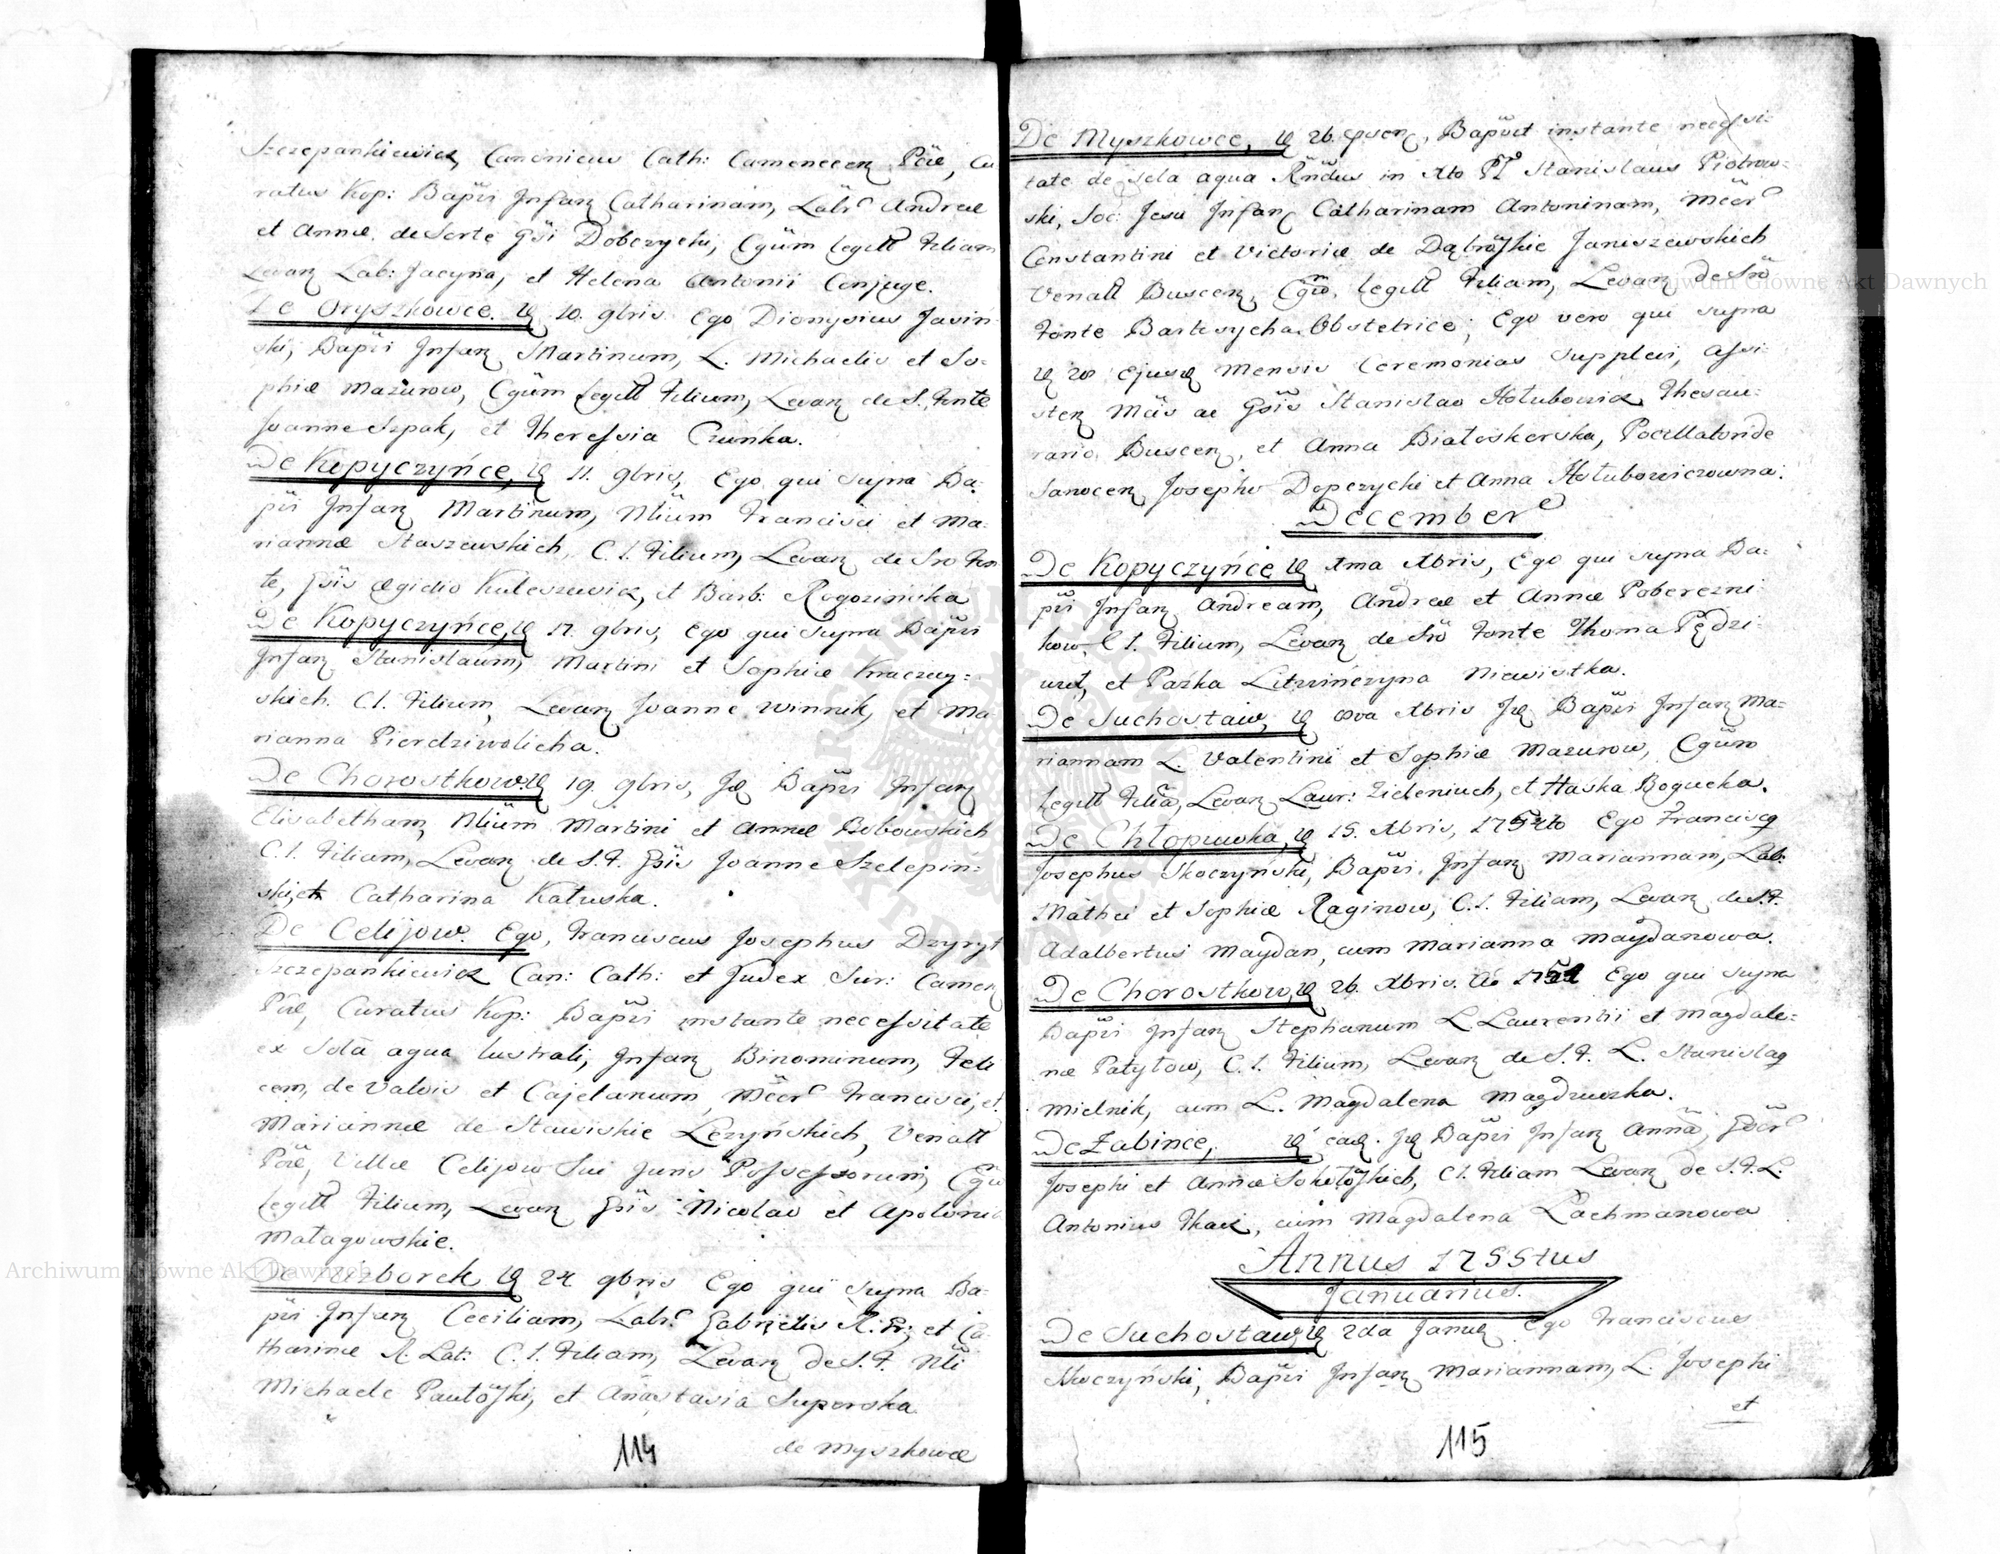 Szczepankiewicz, Canonicus Cath: Camenecen Pčie, Cu
ratus Kop: Bapŭi Infan Catharinam, Labr Andreæ
et Annæ de Sorte Gsi Dobczychi, Cgüm legitt Filiam
Levan Lab: Jacyna, et Helena Antonii Conjuge.
De Oryszkowce. 10. 9bris Ego Dionysius Jasin
ski, Bapŭi Infan Martinum, L. Michaelis et So-
phiæ Mazurow, Cgüm Legitt Filium, Levan de S. Fonte
Joanne Szpak, et Theressia Czunka.
De Kopyczyńce, 11. 9bris, Ego qui supra Ba-
pŭi Infan Martinum, Nlium Francisci et Ma-
riannæ Staszewskich, C. L. Filium, Levan de Sro Fon
te, Gsis Ægidio Kuleszewicz, et Barb: Rogozinska
De Kopyczyńce, 17. 9bris, Ego qui supra Bapŭi
Infan Stanislaum, Martini et Sophiæ Knaczuy=
skich. C. L. Filium, Levan Joanne Winnik, et Ma
rianna Pierdziwolicha.
De Chorostkow. 19. 9bris, Id Bapŭi Infan
Elisabetham, Nlium Martini et Annæ Bobowskich
C. L. Filiam, Levan de S. F. Gsis Joanne Szelepin=
ski, et Catharina Katuska.
De Celijow. Ego, Franciscus Josephus Dzyryt
Szczepankiewicz Can: Cath: et Judex Sur: Camen
Pčie, Curatus Kop: Bapŭi instante necessitate
ex Sola aqua lustrali, Infan Binominum, Feli
cem, de Valois et Cajetanum, Mčcr Francisci, et
Mariannæ de Stawiskie Lezyńskich, Venatt
Pčie, Villæ Celijow Sui Juris Possessorum, Cgü
legitt Filium, Levan Gsis Nicolao et Apolonia
Matagowskie.
De Nizborek, 24 9bris Ego qui supra Ba-
pŭi Infan Ceciliam, Labr Gabrielis R. Gr: et Ca
tharinæ R. Lat: C. L. Filiam, Levan De S. F. Nli
Michaele Pautoski, et Anastasia Superska
114
de Myszkowce
De Myszkowce, 26. ejusdem, Bapŭit instante necessi-
tate de sola aqua Rndus in Xto Pr Stanislaus Piotrow-
ski, Soc: Jesu Infan Catharinam Antoninam, Mčcr
Constantini et Victoriæ de Dąbroskie Januszewskich
Venatt Buscen, Cgü, legitt Filiam, Levan de Sro
Fonte Bartosycha Obstetrice; Ego vero qui supra
28 Ejusd Mensis Ceremonias supplevi, assi-
sten Mcis ac Gsis Stanislao Hołubowicz, Thesau-
rario Buscen, et Anna Białoskorska, Pocillatoride
Sanocen, Josepho Dopczychi et Anna Hołubowiczowna.
December
De Kopyczyńce 1ma Xbris, Ego qui supra Ba-
pŭi Infan Andream, Andreæ et Annæ Poberezni
kow, C. L. Filium, Levan de Sro Fonte Thoma Pędzi
urit, et Paźka Litwinczyna Niewistka.
De Suchostaw, 8va Xbris Id Bapŭi Infan Ma-
riannam L. Valentini et Sophiæ Mazurow, Cgüm
legitt Filiã, Levan Laur: Zieleniuch, et Haska Bogucka.
De Chłopuwka, 15. Xbris, 1754to Ego Franciscq
Josephus Skoczyński, Bapŭi Infan Mariannam, Lab:
Mathei et Sophiæ Raginow, C. L. Filiam, Levan de S. F.
Adalbertus Maydan, cum Marianna Maydanowa.
De Chorostkow, 26. Xbris. Ao 1754 Ego qui supra
Bapŭi Infan Stephanum L. Laurentii et Magdale=
næ Patytow, C. L. Filium, Levan de S. F. L. Stanislaq
Mielnik, cum L. Magdalena Magdzuszka.
De Zabince, ead. Id Bapŭi Infan Annã, Gscr
Josephi et Annæ Sokołoskich, C. L. Filiam Levan de S. F. L.
Antonius Tkacz, cum Magdalena Lachmanowa
Annus 1755tus
Januarius.
De Suchostaw, 2da Janu Ego Franciscus
Skoczyński, Bapŭi Infan Mariannam, L. Josephi
et
115